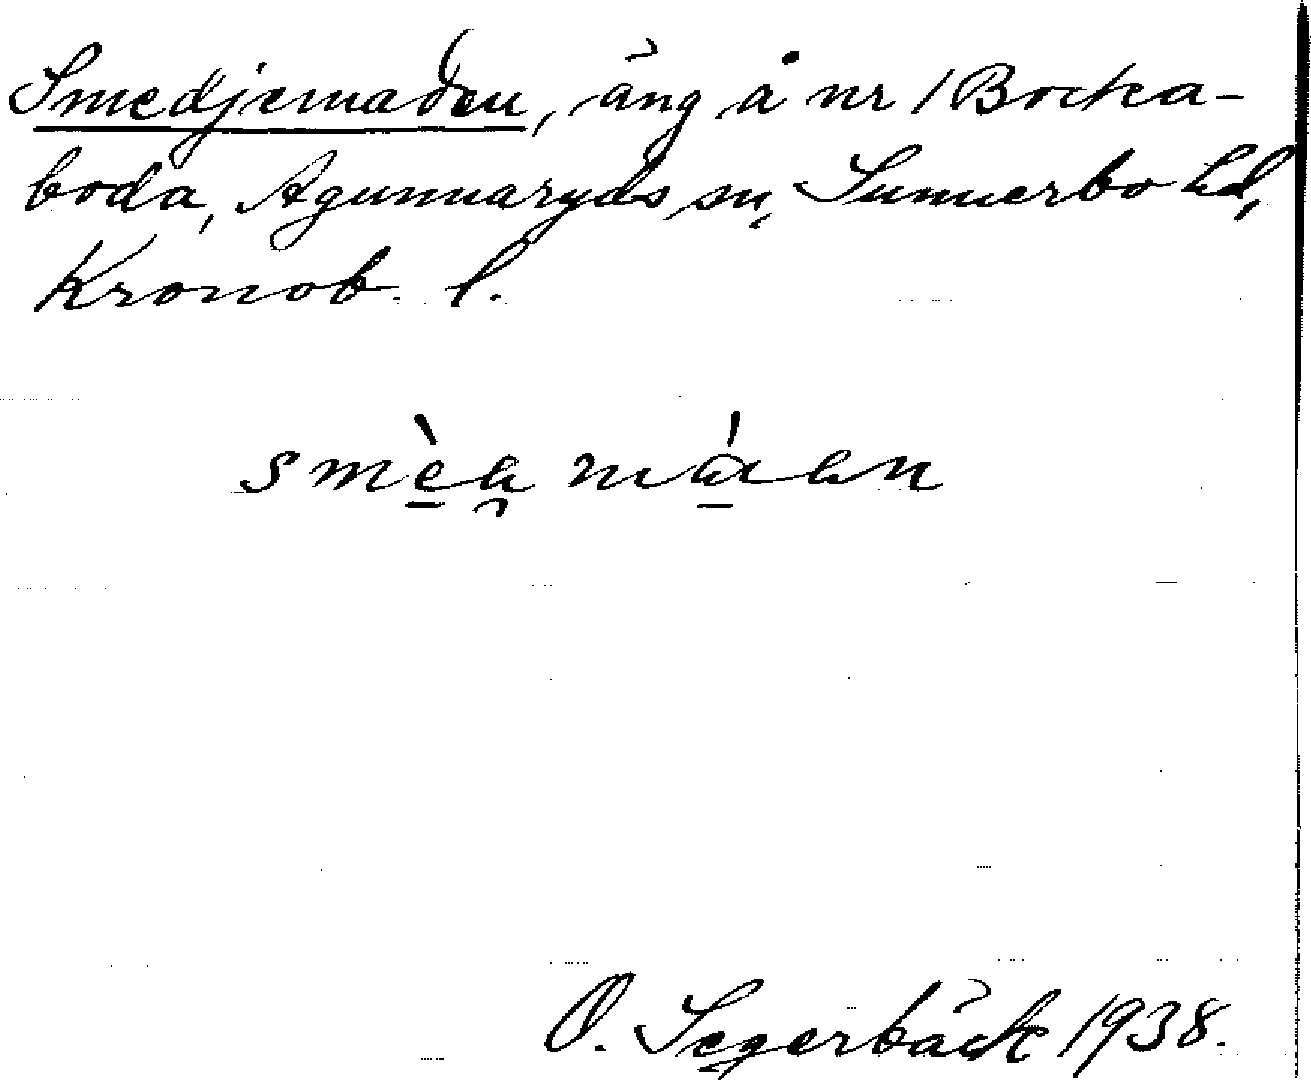 Smedjemaden, äng å nr 1 Bocka-
boda, Agunnaryds sn, Sunnerbo hd,
Kronob. l.
O. Segerbäck 1938.